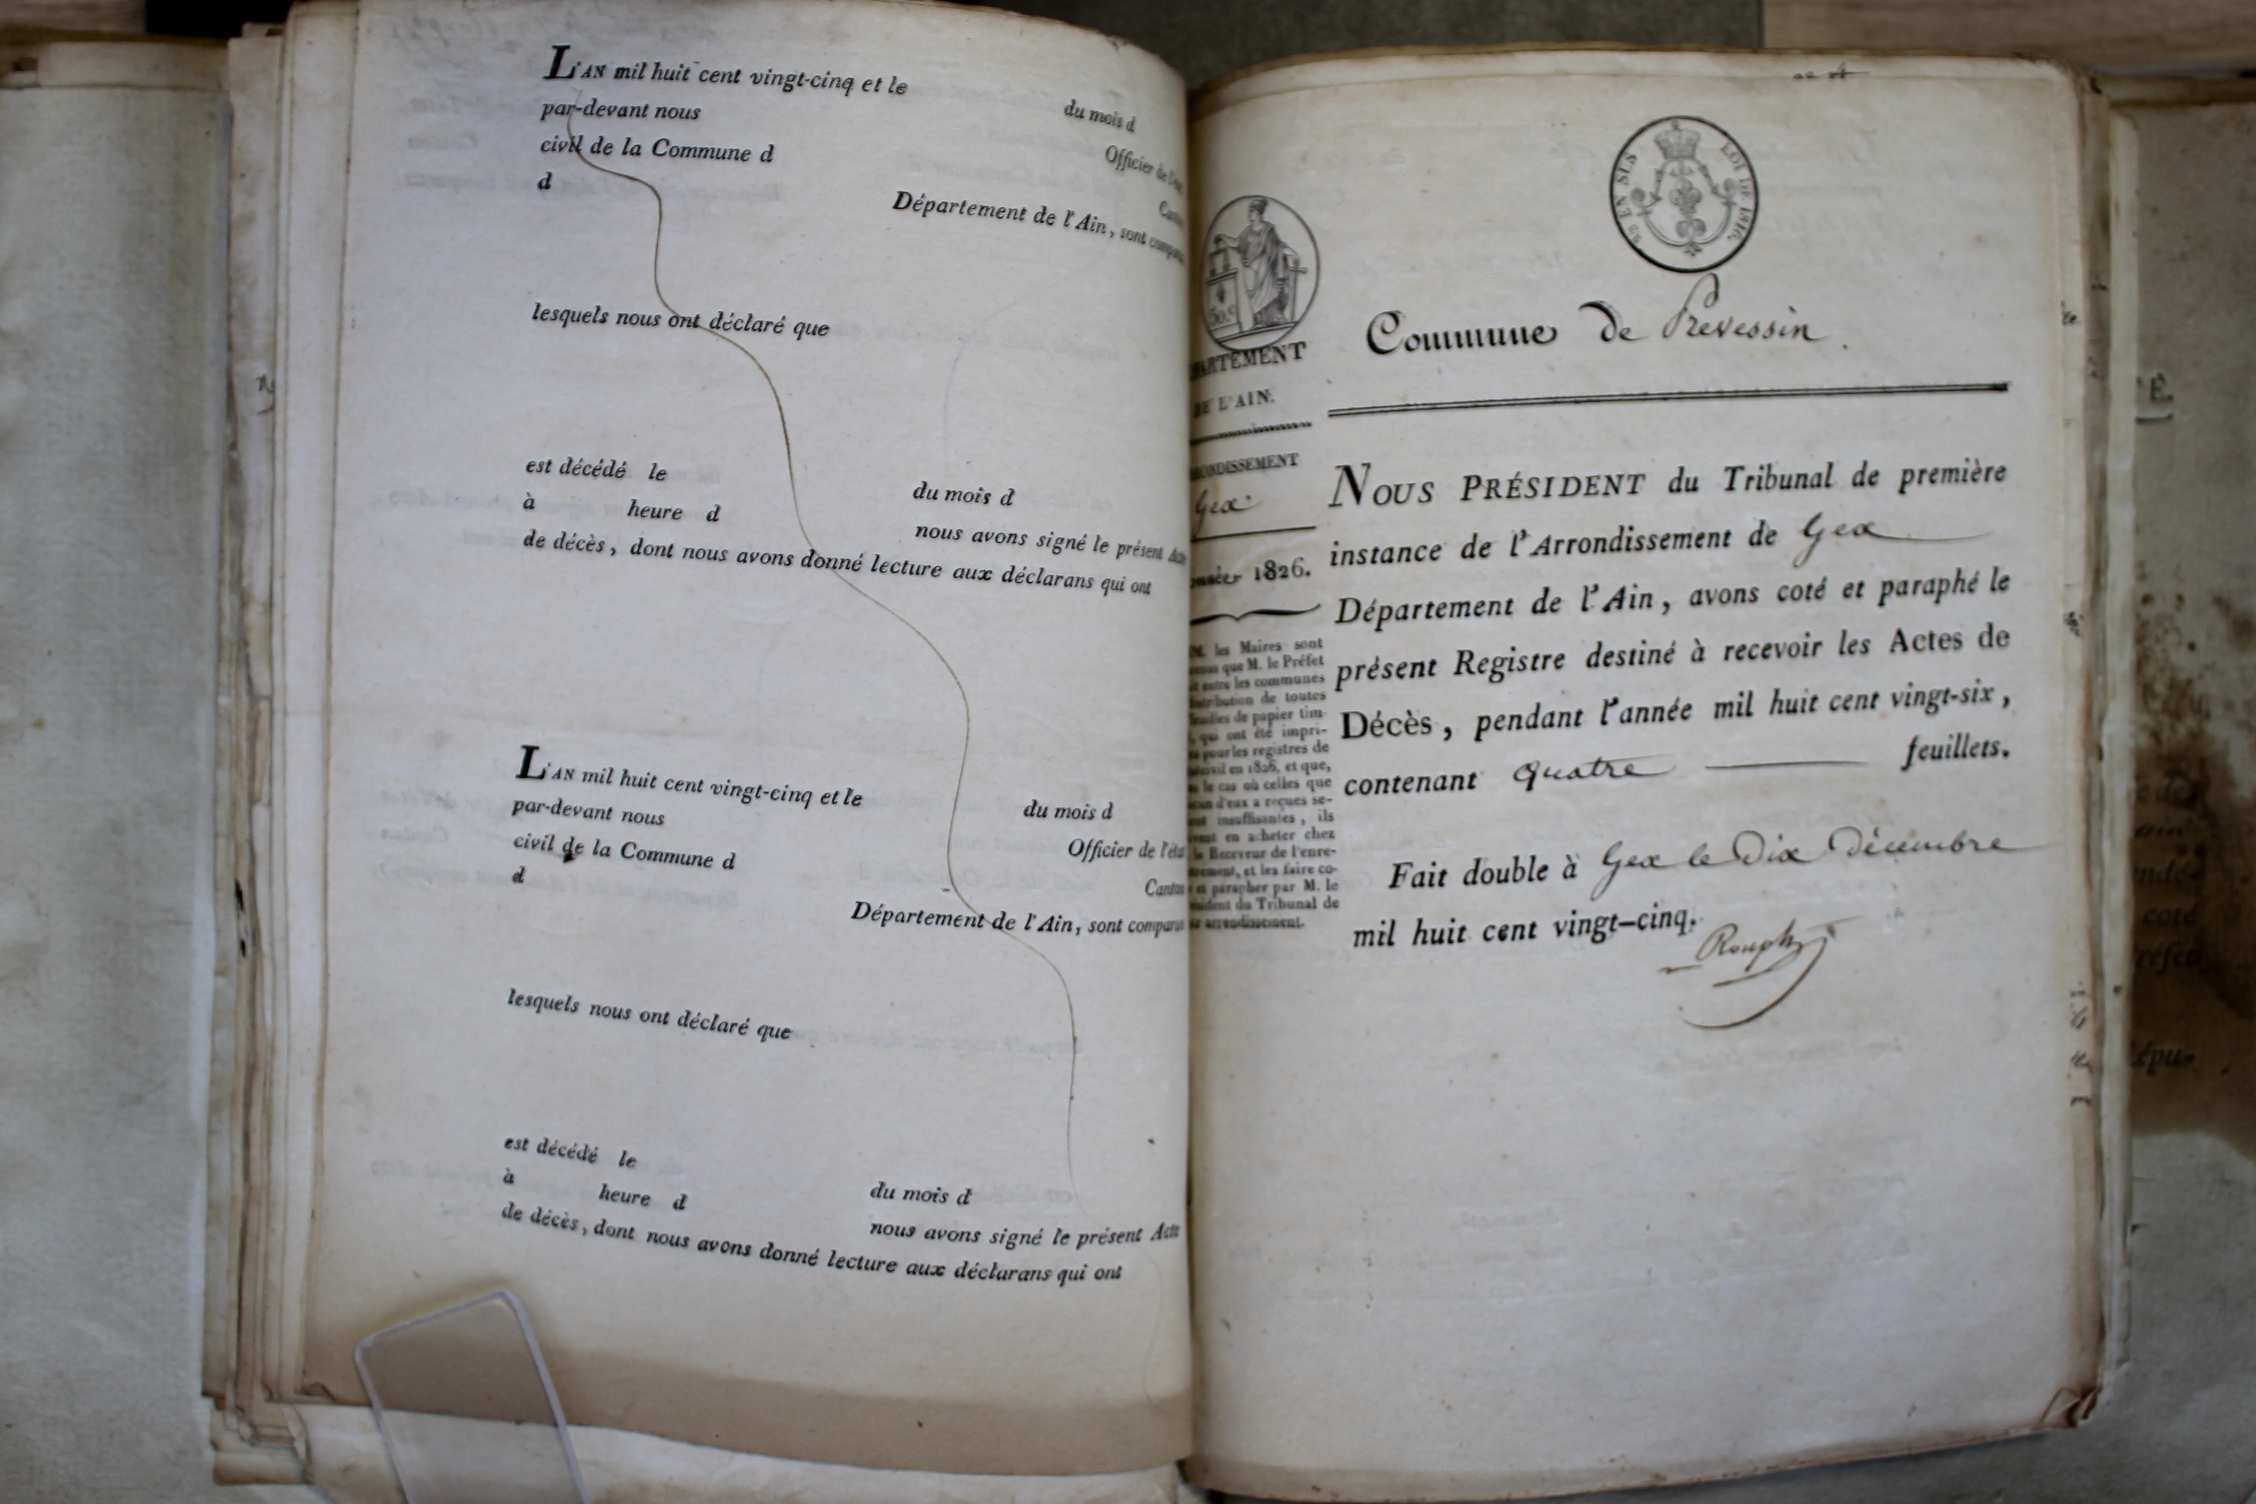 L'AN mil huit cent vingt-cinq et le du mois d
par-devant nous Officier de l'état
civil de la Commune d Canton
d Département de l'Ain, sont comparus
lesquels nous ont déclaré que
est décédé le du mois d
à heure d nous avons signé le présent Acte
de décès, dont nous avons donné lecture aux déclarans qui ont
L'AN mil huit cent vingt-cinq et le du mois d
par-devant nous Officier de l'état
civil de la Commune d Canton
d Département de l'Ain, sont comparus
lesquels nous ont déclaré que
est décédé le du mois d
à heure d nous avons signé le présent Acte
de décès, dont nous avons donné lecture aux déclarans qui ont
EN SUS LOI DE 1816.
50.c
PARTEMENT
DE L'AIN.
RONDISSEMENT
Gex
1826.
M. les Maires sont
que M. le Préfet
entre les communes
distribution de toutes
feuilles de papier tim-
, qui ont été impri-
pour les registres de
civil en 1826, et que,
le cas où celles que
d'eux a reçues se-
insuffisantes, ils
en acheter chez
le Receveur de l'enre-
, et les faire co-
et parapher par M. le
du Tribunal de
arrondissement.
Commune de Prevessin.
NOUS PRÉSIDENT du Tribunal de première
instance de l'Arrondissement de Gex
Département de l'Ain, avons coté et paraphé le
présent Registre destiné à recevoir les Actes de
Décès, pendant l'année mil huit cent vingt-six,
contenant quatre feuillets.
Fait double à Gex le Dix Décembre
mil huit cent vingt-cinq.